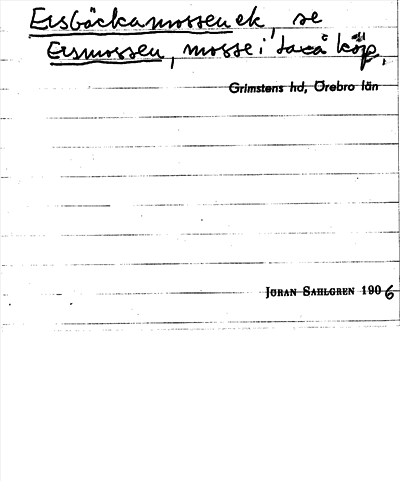 Ersbäckamossen ek, se
Ersmossen, mosse i Laxå köp,
Grimstens hd, Örebro län
JÖRAN SAHLGREN 1906